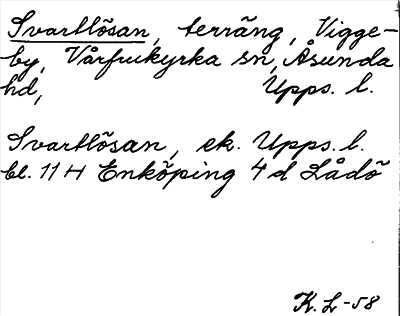 Svartlösan, terräng, Vigge-
by, Vårfrukyrka sn, Åsunda
hd, Upps. l.
Svartlösan, ek. Upps. l.
bl. 11 H Enköping 4 d Lådö
K. L -58